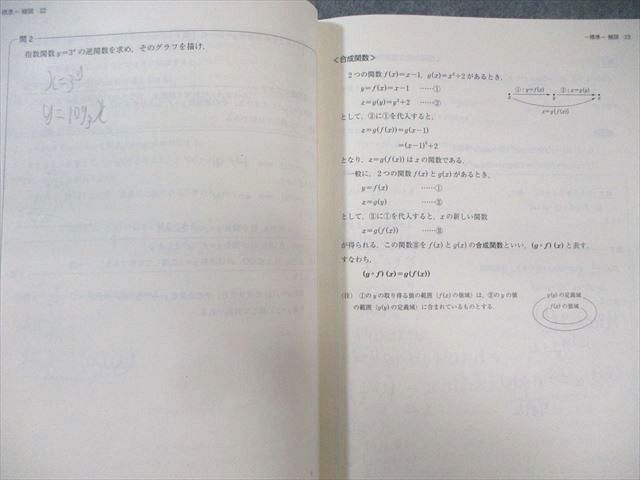 標準－極限 22
問2
指数関数 y=3ˣ の逆関数を求め，そのグラフを描け．
x=3ʸ
y=log₃x
－標準－極限 23
＜合成関数＞
2つの関数 f(x)=x−1，g(x)=x²+2 があるとき，
y=f(x)=x−1 ……①
z=g(y)=y²+2 ……②
として，②に①を代入すると，
z=g(f(x))=g(x−1)
=(x−1)²+2
となり，z=g(f(x)) は x の関数である．
一般に，2つの関数 f(x) と g(x) があるとき，
y=f(x) ……①
z=g(y) ……②
として，②に①を代入すると，x の新しい関数
z=g(f(x)) ……③
が得られる．この関数③を f(x) と g(x) の合成関数といい，(g∘f)(x) と表す．
すなわち，
(g∘f)(x)=g(f(x))
①：y=f(x) ②：z=g(y)
x y z
z=g(f(x))
（注） ①の y の取り得る値の範囲（f(x) の値域）は，②の y の値
の範囲（g(y) の定義域）に含まれているものとする．
g(y) の定義域
f(x) の値域